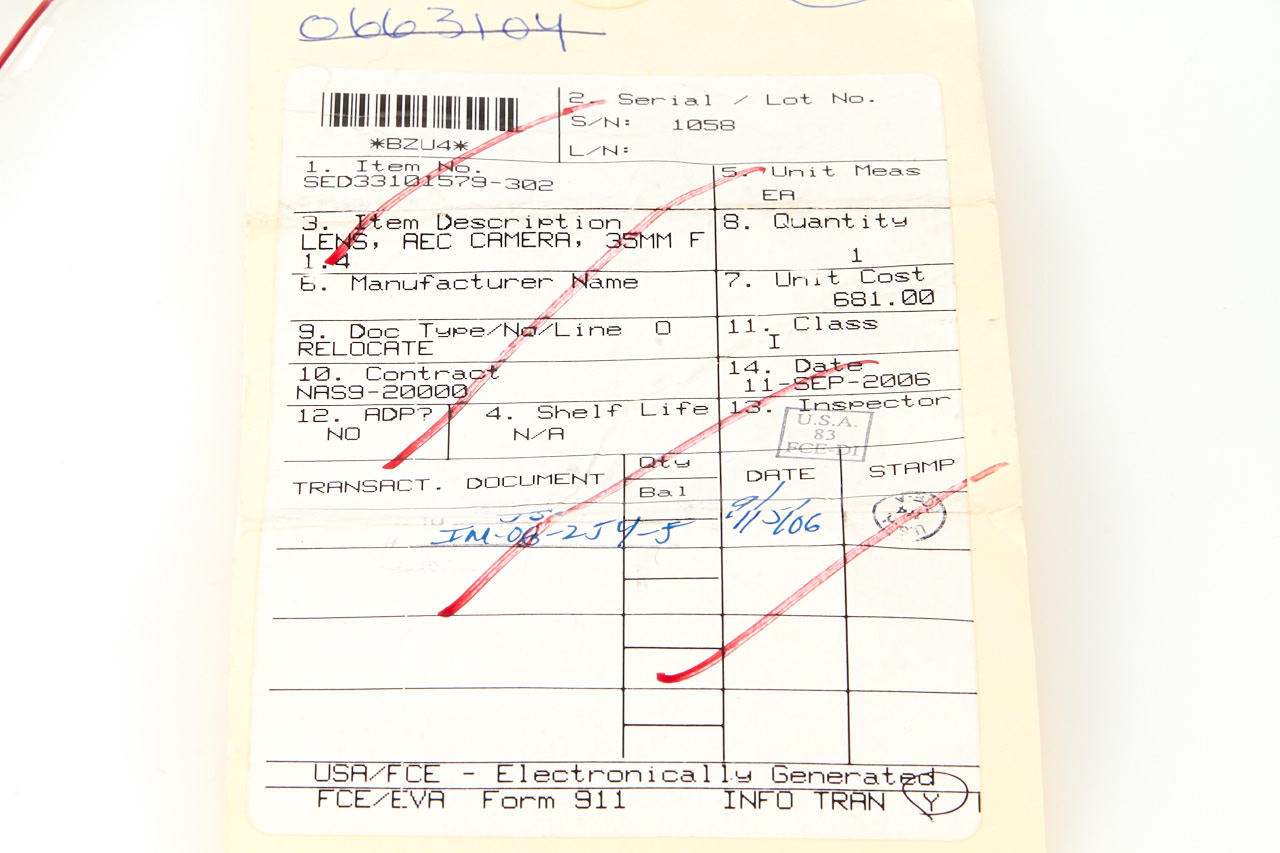 0663104
*BZU4*
2. Serial / Lot No.
S/N: 1058
L/N:
1. Item No.
SED33101579-302
5. Unit Meas
EA
3. Item Description
LENS, AEC CAMERA, 35MM F
1.4
8. Quantity
1
6. Manufacturer Name
7. Unit Cost
681.00
9. Doc Type/No/Line 0
RELOCATE
11. Class
I
10. Contract
NAS9-20000
14. Date
11-SEP-2006
12. ADP?
NO
4. Shelf Life
N/A
13. Inspector
U.S.A.
83
FCE-DI
TRANSACT. DOCUMENT
Qty
Bal
DATE
STAMP
9/15/06
USA/FCE - Electronically Generated
FCE/EVA Form 911 INFO TRAN Y